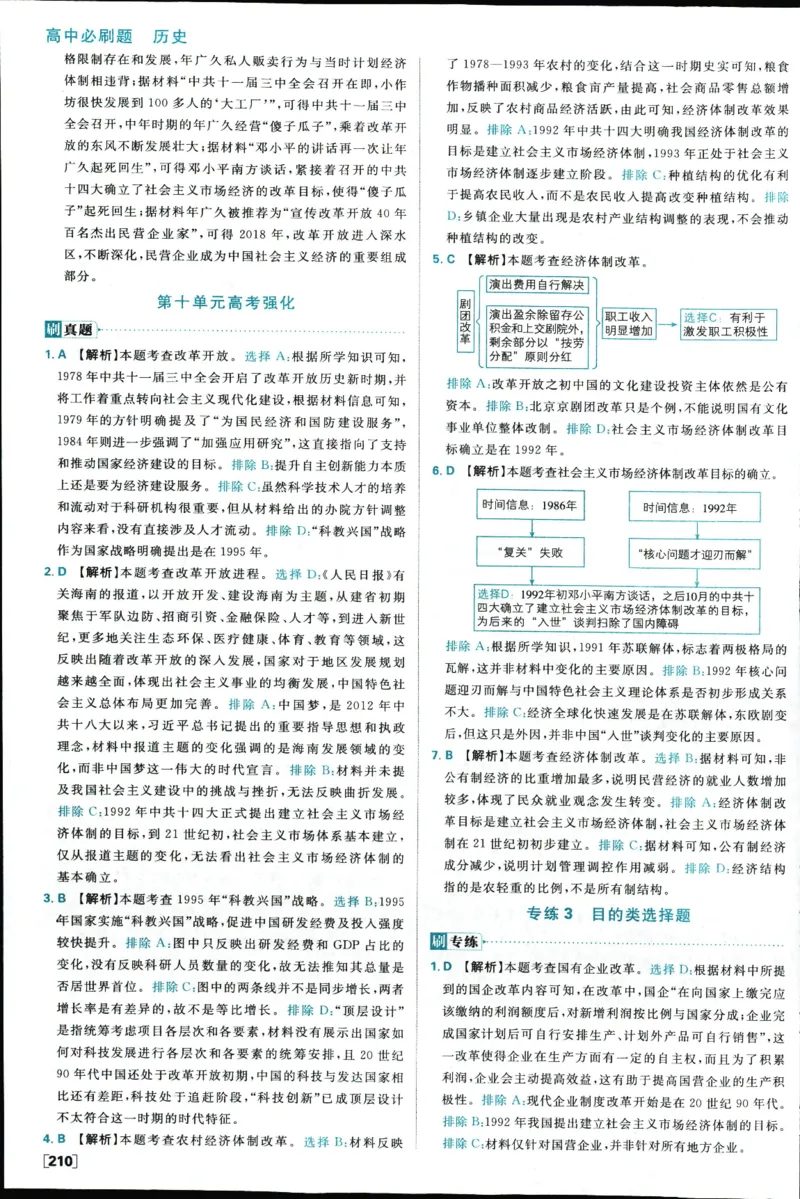 高中必刷题 历史
格限制存在和发展,年广久私人贩卖行为与当时计划经济
体制相违背;据材料“中共十一届三中全会召开在即,小作
坊很快发展到 100 多人的‘大工厂’”,可得中共十一届三中
全会召开,中年时期的年广久经营“傻子瓜子”,乘着改革开
放的东风不断发展壮大;据材料“邓小平的讲话再一次让年
广久起死回生”,可得邓小平南方谈话,紧接着召开的中共
十四大确立了社会主义市场经济的改革目标,使得“傻子瓜
子”起死回生;据材料年广久被推荐为“宣传改革开放 40 年
百名杰出民营企业家”,可得 2018 年,改革开放进入深水
区,不断深化,民营企业成为中国社会主义经济的重要组成
部分。
第十单元高考强化
刷真题
1. A 【解析】本题考查改革开放。选择 A:根据所学知识可知,
1978 年中共十一届三中全会开启了改革开放历史新时期,并
将工作着重点转向社会主义现代化建设,根据材料信息可知,
1979 年的方针明确提及了“为国民经济和国防建设服务”,
1984 年则进一步强调了“加强应用研究”,这直接指向了支持
和推动国家经济建设的目标。排除 B:提升自主创新能力本质
上还是要为经济建设服务。排除 C:虽然科学技术人才的培养
和流动对于科研机构很重要,但从材料给出的办院方针调整
内容来看,没有直接涉及人才流动。排除 D:“科教兴国”战略
作为国家战略明确提出是在 1995 年。
2. D 【解析】本题考查改革开放进程。选择 D:《人民日报》有
关海南的报道,以开放开发、建设海南为主题,从建省初期
聚焦于军队边防、招商引资、金融保险、人才等,到进入新世
纪,更多地关注生态环保、医疗健康、体育、教育等领域,这
反映出随着改革开放的深入发展,国家对于地区发展规划
越来越全面,体现出社会主义事业的均衡发展,中国特色社
会主义总体布局更加完善。排除 A:中国梦,是 2012 年中
共十八大以来,习近平总书记提出的重要指导思想和执政
理念,材料中报道主题的变化强调的是海南发展领域的变
化,而非中国梦这一伟大的时代宣言。排除 B:材料并未提
及我国社会主义建设中的挑战与挫折,无法反映曲折发展。
排除 C:1992 年中共十四大正式提出建立社会主义市场经
济体制的目标,到 21 世纪初,社会主义市场体系基本建立,
仅从报道主题的变化,无法看出社会主义市场经济体制的
基本确立。
3. B 【解析】本题考查 1995 年“科教兴国”战略。选择 B:1995
年国家实施“科教兴国”战略,促进中国研发经费及投入强度
较快提升。排除 A:图中只反映出研发经费和 GDP 占比的
变化,没有反映科研人员数量的变化,故无法推知其总量是
否居世界首位。排除 C:图中的两条线并不是同步增长,两者
增长率是有差异的,故不是等比增长。排除 D:“顶层设计”
是指统筹考虑项目各层次和各要素,材料没有展示出国家如
何对科技发展进行各层次和各要素的统筹安排,且 20 世纪
90 年代中国还处于改革开放初期,中国的科技与发达国家相
比还有差距,科技处于追赶阶段,“科技创新”已成顶层设计
不太符合这一时期的时代特征。
4. B 【解析】本题考查农村经济体制改革。选择 B:材料反映
[210]
了 1978—1993 年农村的变化,结合这一时期史实可知,粮食
作物播种面积减少,粮食亩产量提高,社会商品零售总额增
加,反映了农村商品经济活跃,由此可知,经济体制改革效果
明显。排除 A:1992 年中共十四大明确我国经济体制改革的
目标是建立社会主义市场经济体制,1993 年正处于社会主义
市场经济体制逐步建立阶段。排除 C:种植结构的优化有利
于提高农民收入,而不是农民收入提高改变种植结构。排除
D:乡镇企业大量出现是农村产业结构调整的表现,不会推动
种植结构的改变。
5. C 【解析】本题考查经济体制改革。
剧团改革
演出费用自行解决
演出盈余除留存公
积金和上交剧院外,
剩余部分以“按劳
分配”原则分红
职工收入
明显增加
选择C:有利于
激发职工积极性
排除 A:改革开放之初中国的文化建设投资主体依然是公有
资本。排除 B:北京京剧团改革只是个例,不能说明国有文化
事业单位整体改制。排除 D:社会主义市场经济体制改革目
标确立是在 1992 年。
6. D 【解析】本题考查社会主义市场经济体制改革目标的确立。
时间信息:1986年
时间信息:1992年
“复关”失败
“核心问题才迎刃而解”
选择D:1992年初邓小平南方谈话,之后10月的中共十
四大确立了建立社会主义市场经济体制改革的目标,
为后来的“入世”谈判扫除了国内障碍
排除 A:根据所学知识,1991 年苏联解体,标志着两极格局的
瓦解,这并非材料中变化的主要原因。排除 B:1992 年核心问
题迎刃而解与中国特色社会主义理论体系是否初步形成关系
不大。排除 C:经济全球化快速发展是在苏联解体,东欧剧变
后,但这只是外因,并非中国“入世”谈判变化的主要原因。
7. B 【解析】本题考查经济体制改革。选择 B:据材料可知,非
公有制经济的比重增加最多,说明民营经济的就业人数增加
较多,体现了民众就业观念发生转变。排除 A:经济体制改
革目标是建立社会主义市场经济体制,社会主义市场经济体
制在 21 世纪初初步建立。排除 C:据材料可知,公有制经济
成分减少,说明计划管理调控作用减弱。排除 D:经济结构
指的是农轻重的比例,不是所有制结构。
专练 3 目的类选择题
刷专练
1. D 【解析】本题考查国有企业改革。选择 D:根据材料中所提
到的国企改革内容可知,在改革中,国企“在向国家上缴完应
该缴纳的利润额度后,对新增利润按比例与国家分成;企业完
成国家计划后可自行安排生产、计划外产品可自行销售”,这
一改革使得企业在生产方面有一定的自主权,而且为了积累
利润,企业会主动提高效益,这有助于提高国营企业的生产积
极性。排除 A:现代企业制度改革开始是在 20 世纪 90 年代。
排除 B:1992 年我国提出建立社会主义市场经济体制的目标。
排除 C:材料仅针对国营企业,并非针对所有地方企业。